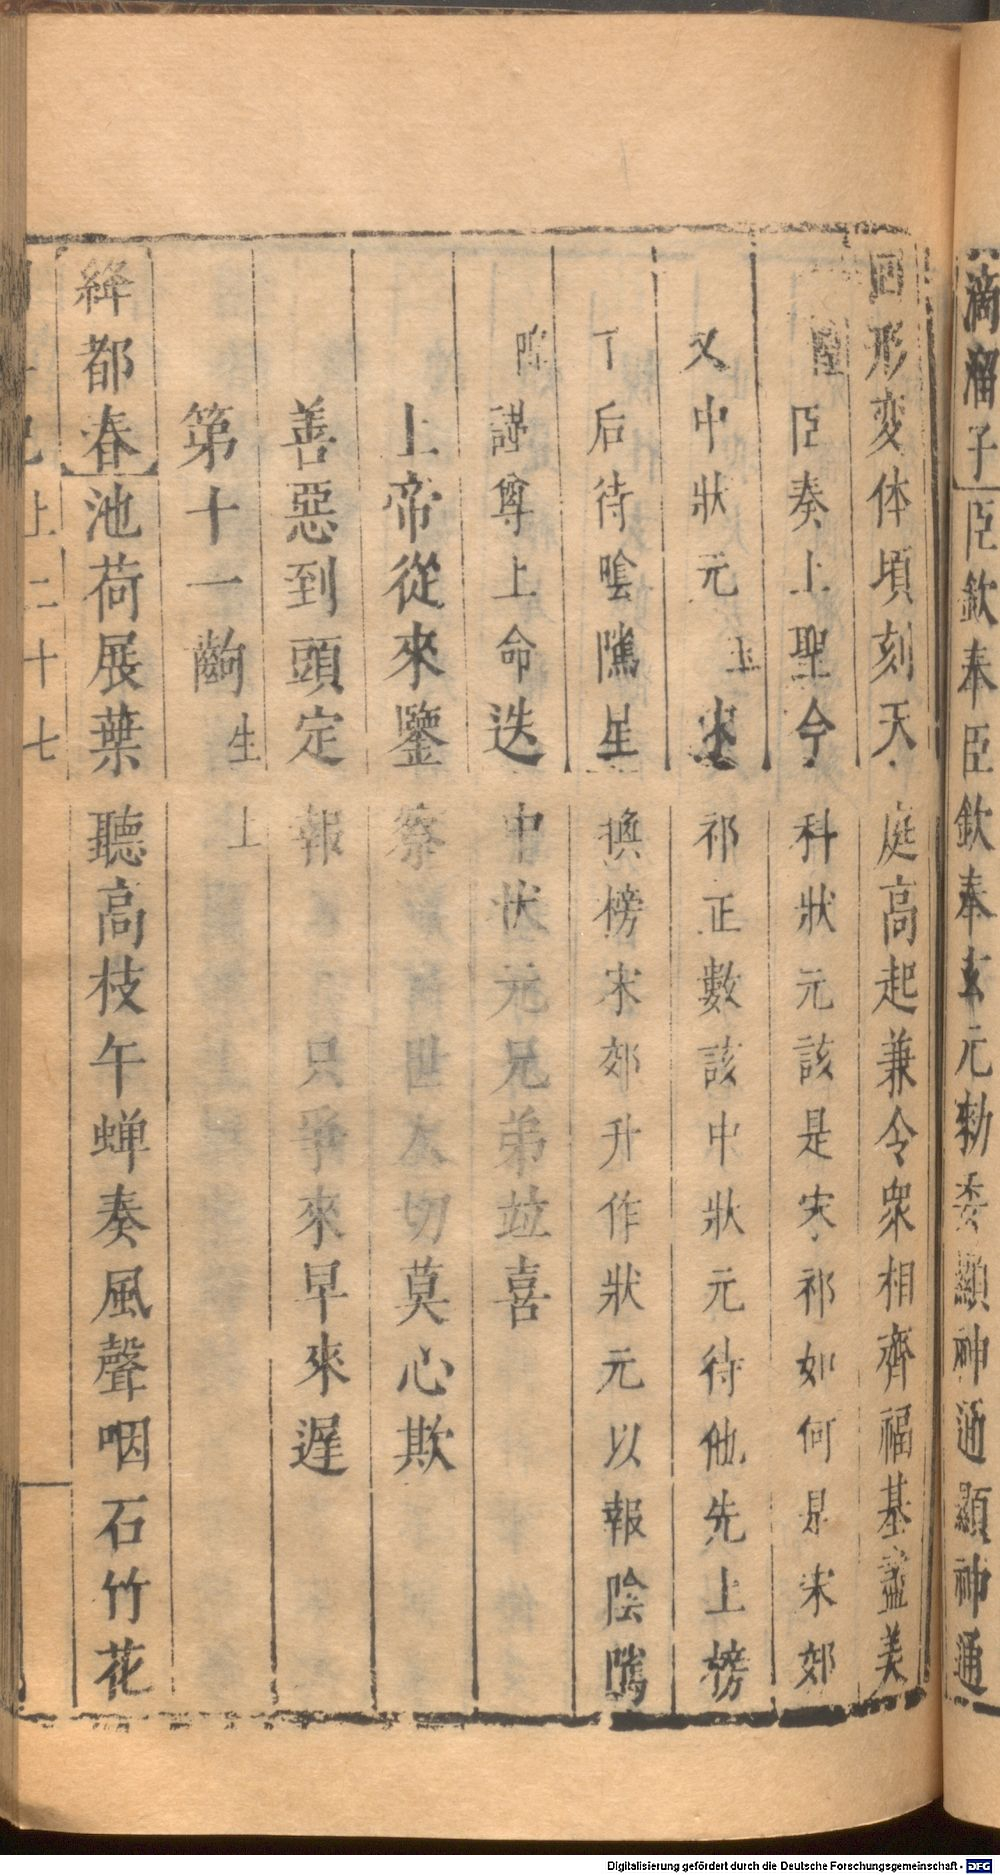 滴溜子臣欽奉臣欽奉玄元勑委顯神通顯神通
回形変体頃刻天庭高起兼令衆相齊福基盡美
臣奏上聖今科狀元該是宋祁如何是宋郊
又中狀元 上 宋祁正數該中狀元待他先上榜
丁后待喰隲星換榜宋郊升作狀元以報陰隲
謹尊上命迭中状元兄弟竝喜
上帝從來鑒察 世人切莫心欺
善惡到頭定報 只爭來早來遲
第十一齣 生上
絳都春池荷展葉聽高枝午蝉奏風聲咽石竹花
上 二十七
Digitalisierung gefördert durch die Deutsche Forschungsgemeinschaft - DFG